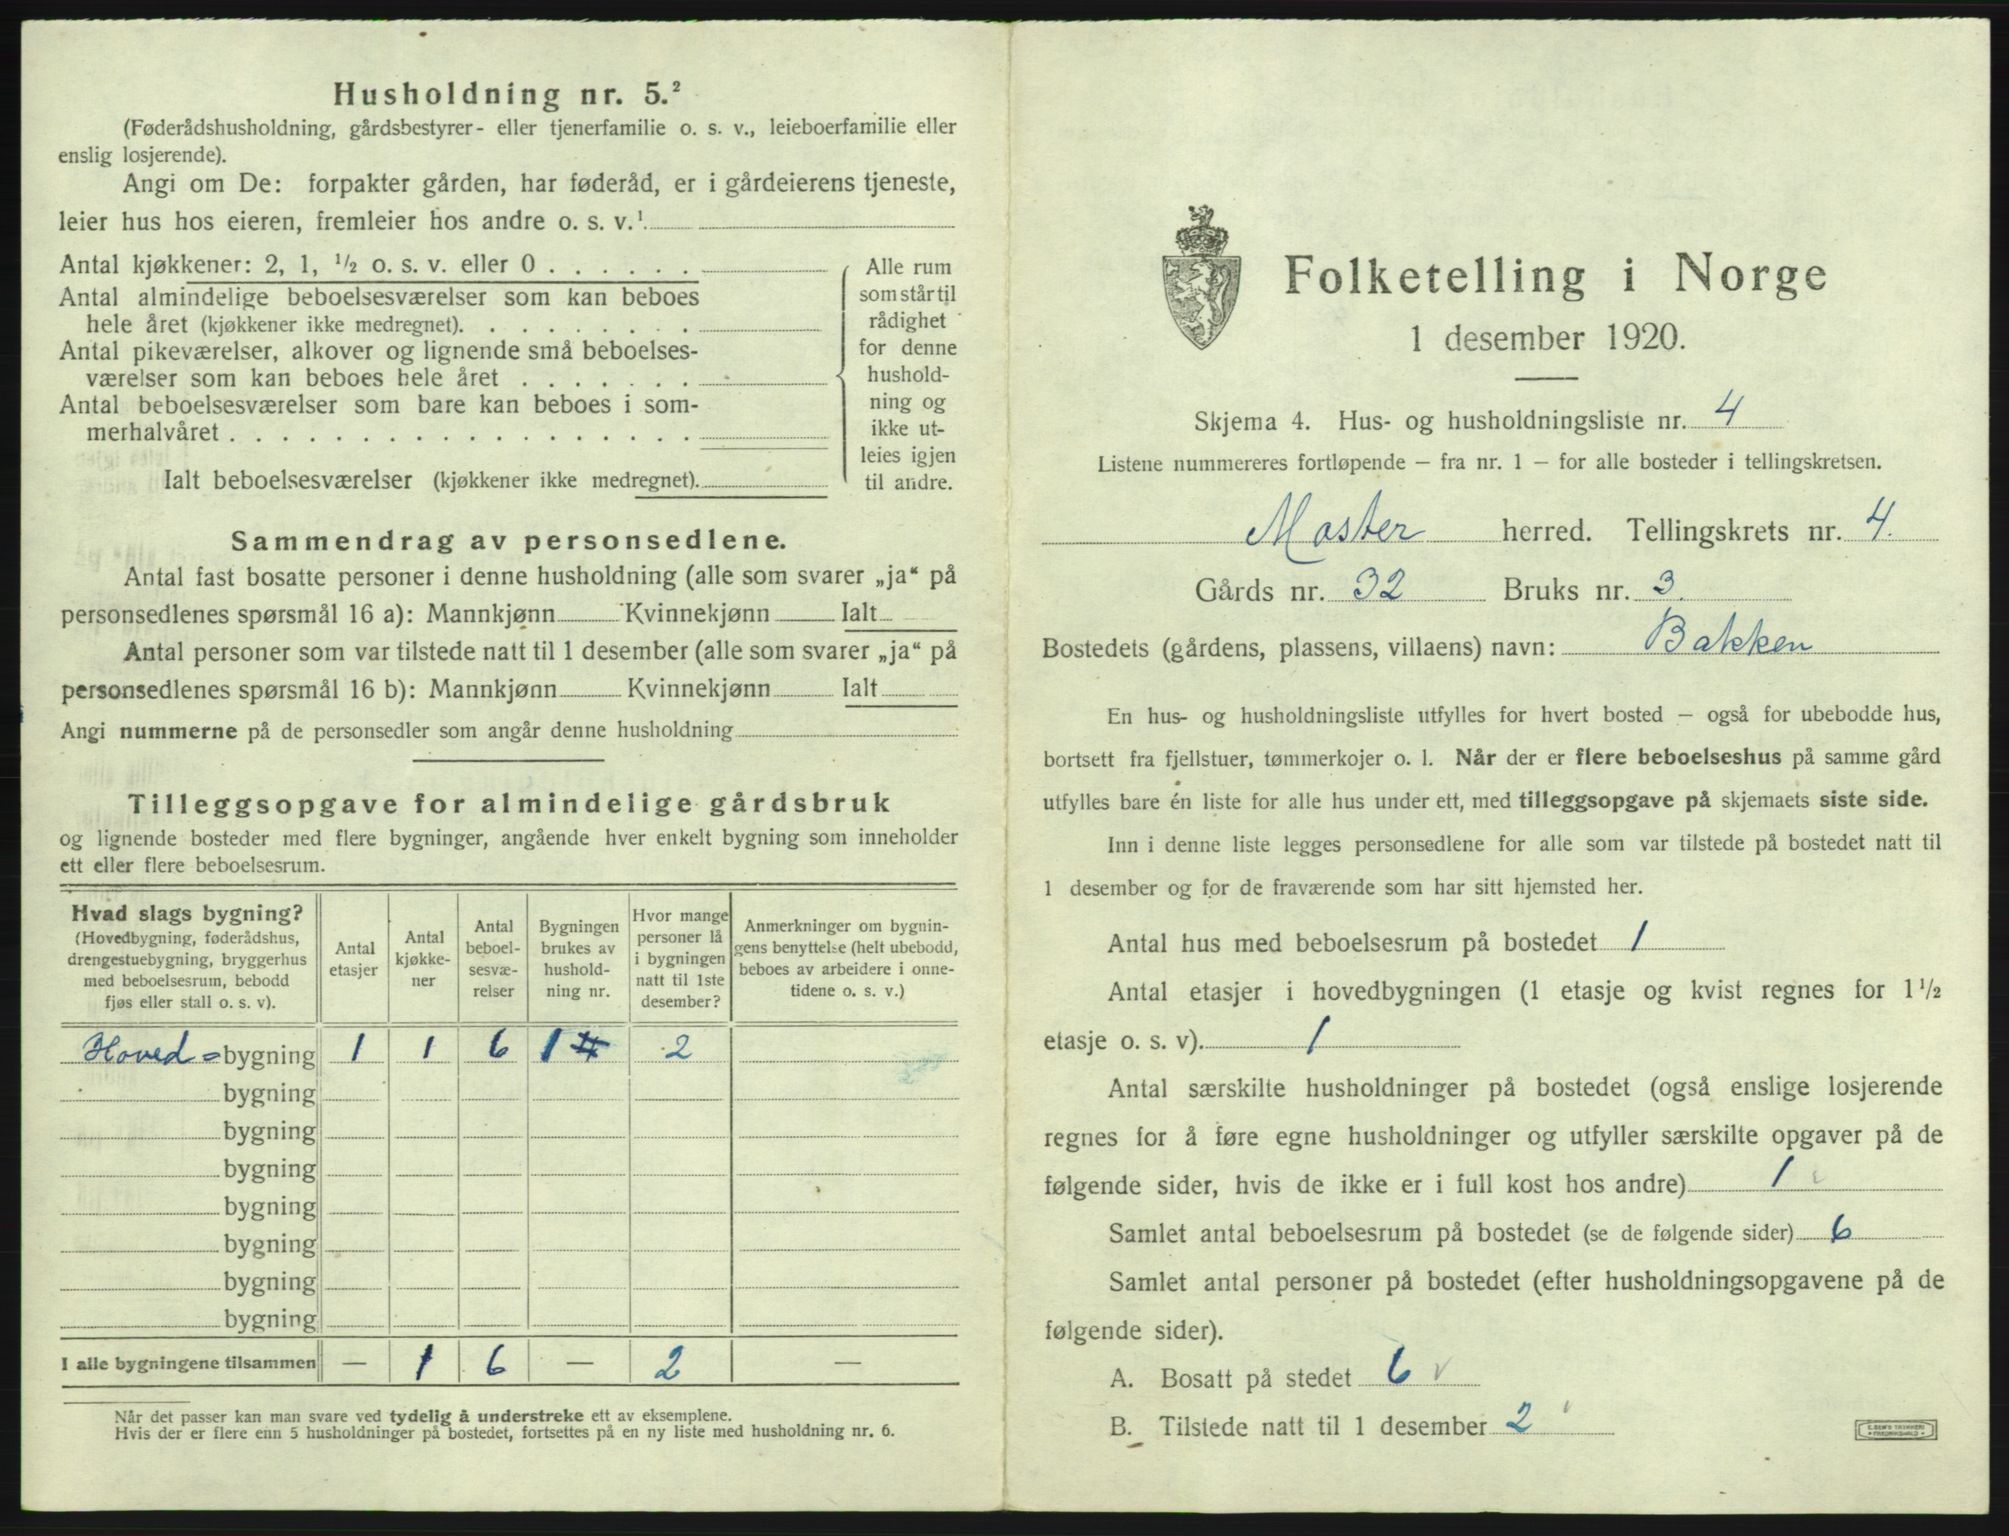 Husholdning nr. 5.²
(Føderådshusholdning, gårdsbestyrer- eller tjenerfamilie o. s. v., leieboerfamilie eller
enslig losjerende).
Angi om De: forpakter gården, har føderåd, er i gårdeierens tjeneste,
leier hus hos eieren, fremleier hos andre o. s. v.¹
Antal kjøkkener: 2, 1, ½ o. s. v. eller 0 . . . . . .
Antal almindelige beboelsesværelser som kan beboes
hele året (kjøkkener ikke medregnet). . . . . . . . .
Antal pikeværelser, alkover og lignende små beboelses-
værelser som kan beboes hele året . . . . . . .
Antal beboelsesværelser som bare kan beboes i som-
merhalvåret . . . . . . . . . . . . . . . . . .
Ialt beboelsesværelser (kjøkkener ikke medregnet).
Alle rum
som står til
rådighet
for denne
hushold-
ning og
ikke ut-
leies igjen
til andre.
Sammendrag av personsedlene.
Antal fast bosatte personer i denne husholdning (alle som svarer „ja“ på
personsedlenes spørsmål 16 a): Mannkjønn Kvinnekjønn Ialt
Antal personer som var tilstede natt til 1 desember (alle som svarer „ja“ på
personsedlenes spørsmål 16 b): Mannkjønn Kvinnekjønn Ialt
Angi nummerne på de personsedler som angår denne husholdning
Tilleggsopgave for almindelige gårdsbruk
og lignende bosteder med flere bygninger, angående hver enkelt bygning som inneholder
ett eller flere beboelsesrum.
Hvad slags bygning?
(Hovedbygning, føderådshus,
drengestuebygning, bryggerhus
med beboelsesrum, bebodd
fjøs eller stall o. s. v).
Antal
etasjer
Antal
kjøkke-
ner
Antal
beboel-
sesvæ-
relser
Bygningen
brukes av
hushold-
ning nr.
Hvor mange
personer lå
i bygningen
natt til 1ste
desember?
Anmerkninger om bygnin-
gens benyttelse (helt ubebodd,
beboes av arbeidere i onne-
tidene o. s. v.)
Hoved = bygning 1 1 6 1 2
bygning
bygning
bygning
bygning
bygning
bygning
bygning
I alle bygningene tilsammen — 1 6 — 2 —
Når det passer kan man svare ved tydelig å understreke ett av eksemplene.
Hvis der er flere enn 5 husholdninger på bostedet, fortsettes på en ny liste med husholdning nr. 6.
Folketelling i Norge
1 desember 1920.
Skjema 4. Hus- og husholdningsliste nr. 4
Listene nummereres fortløpende — fra nr. 1 — for alle bosteder i tellingskretsen.
Moster herred. Tellingskrets nr. 4.
Gårds nr. 32 Bruks nr. 3.
Bostedets (gårdens, plassens, villaens) navn: Bakken
En hus- og husholdningsliste utfylles for hvert bosted — også for ubebodde hus,
bortsett fra fjellstuer, tømmerkojer o. l. Når der er flere beboelseshus på samme gård
utfylles bare én liste for alle hus under ett, med tilleggsopgave på skjemaets siste side.
Inn i denne liste legges personsedlene for alle som var tilstede på bostedet natt til
1 desember og for de fraværende som har sitt hjemsted her.
Antal hus med beboelsesrum på bostedet 1
Antal etasjer i hovedbygningen (1 etasje og kvist regnes for 1½
etasje o. s. v). 1
Antal særskilte husholdninger på bostedet (også enslige losjerende
regnes for å føre egne husholdninger og utfyller særskilte opgaver på de
følgende sider, hvis de ikke er i full kost hos andre) 1
Samlet antal beboelsesrum på bostedet (se de følgende sider) 6
Samlet antal personer på bostedet (efter husholdningsopgavene på de
følgende sider).
A. Bosatt på stedet 6
B. Tilstede natt til 1 desember 2